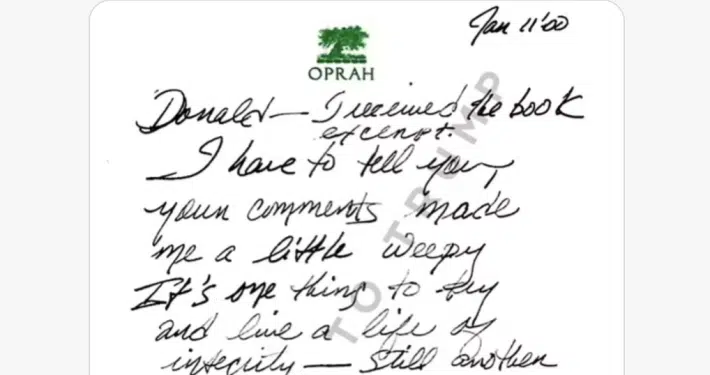 Jan 11'00
OPRAH
Donald — I received the book
excerpt.
I have to tell you,
your comments made
me a little weepy
It's one thing to try
and live a life of
integrity — still another
TO TRUMP